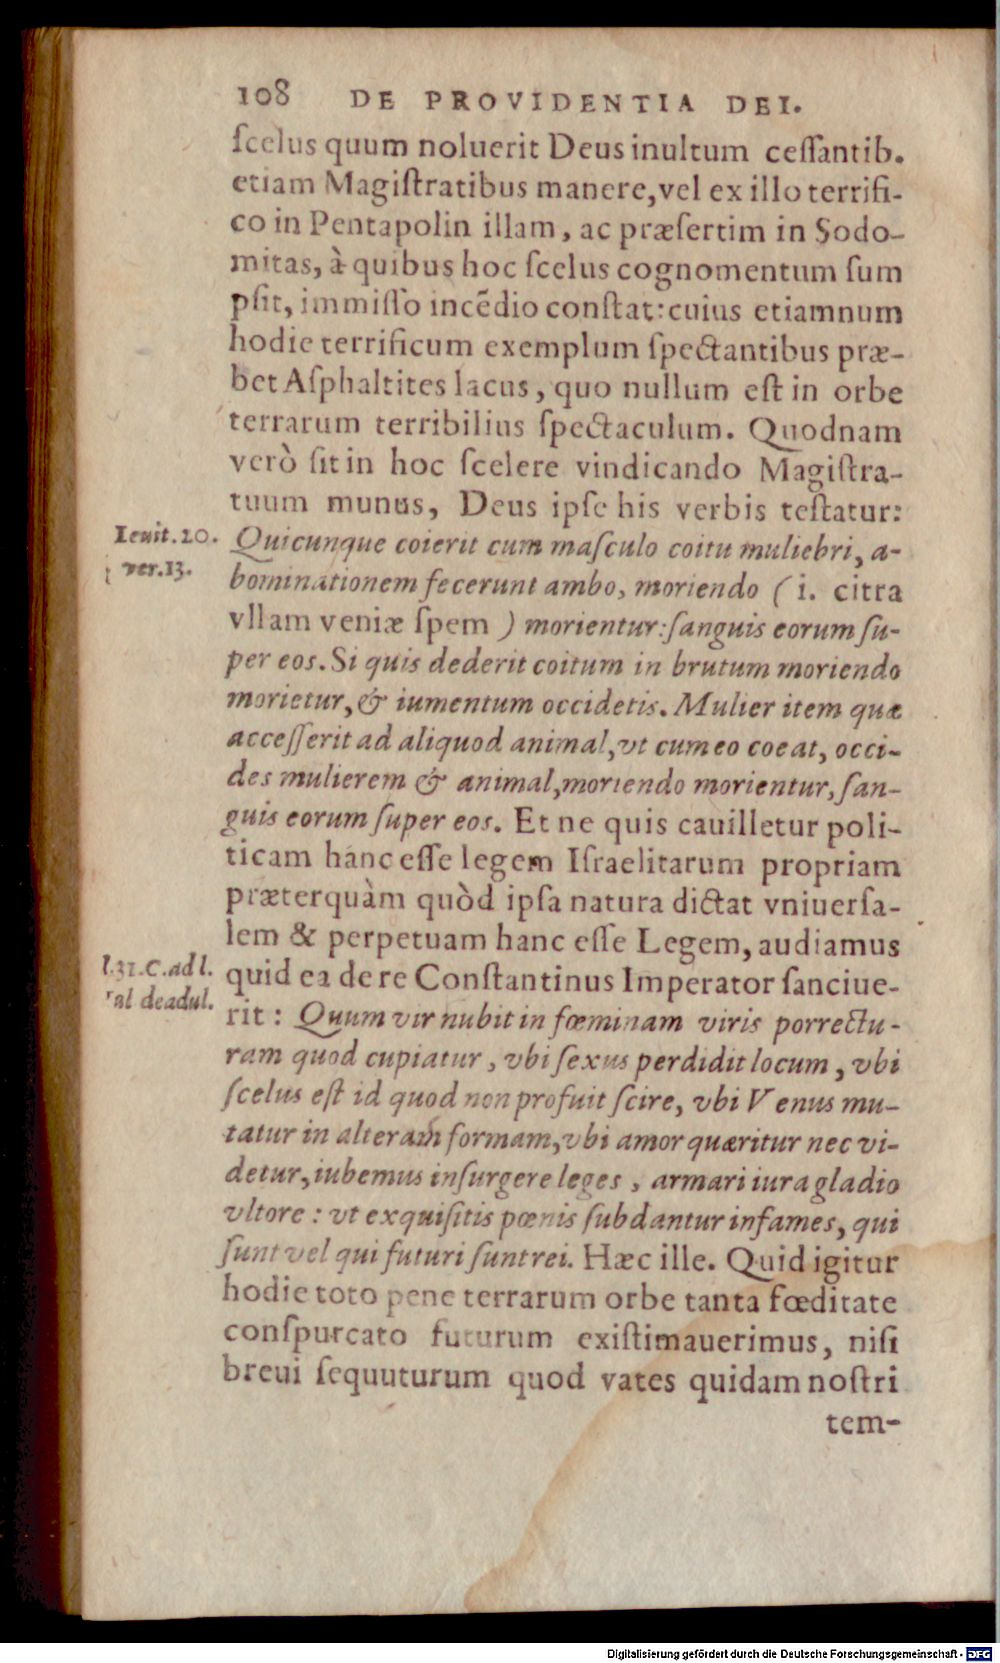 108 DE PROVIDENTIA DEI.
ſcelus quum noluerit Deus inultum ceſſantib.
etiam Magiſtratibus manere, vel ex illo terrifi-
co in Pentapolin illam, ac præſertim in Sodo-
mitas, à quibus hoc ſcelus cognomentum ſum
pſit, immiſſo incẽdio conſtat: cuius etiamnum
hodie terrificum exemplum ſpectantibus præ-
bet Aſphaltites lacus, quo nullum eſt in orbe
terrarum terribilius ſpectaculum. Quodnam
verò ſit in hoc ſcelere vindicando Magiſtra-
tuum munus, Deus ipſe his verbis teſtatur:
Leuit. 20.
ver. 13.
Quicunque coierit cum maſculo coitu muliebri, a-
bominationem fecerunt ambo, moriendo (i. citra
vllam veniæ ſpem) morientur: ſanguis eorum ſu-
per eos. Si quis dederit coitum in brutum moriendo
morietur, & iumentum occidetis. Mulier item quæ
acceſſerit ad aliquod animal, vt cum eo coeat, occi-
des mulierem & animal, moriendo morientur, ſan-
guis eorum ſuper eos. Et ne quis cauilletur poli-
ticam hanc eſſe legem Iſraelitarum propriam
præterquàm quòd ipſa natura dictat vniuerſa-
lem & perpetuam hanc eſſe Legem, audiamus
l. 31. C. ad l.
al de adul.
quid ea de re Conſtantinus Imperator ſanciue-
rit: Quum vir nubit in fœminam viris porrectu-
ram quod cupiatur, vbi ſexus perdidit locum, vbi
ſcelus eſt id quod non profuit ſcire, vbi Venus mu-
tatur in alteram formam, vbi amor quæritur nec vi-
detur, iubemus inſurgere leges, armari iura gladio
vltore: vt exquiſitis pœnis ſubdantur infames, qui
ſunt vel qui futuri ſunt rei. Hæc ille. Quid igitur
hodie toto pene terrarum orbe tanta fœditate
conſpurcato futurum exiſtimauerimus, niſi
breui ſequuturum quod vates quidam noſtri
tem-
Digitalisierung gefördert durch die Deutsche Forschungsgemeinschaft - DFG